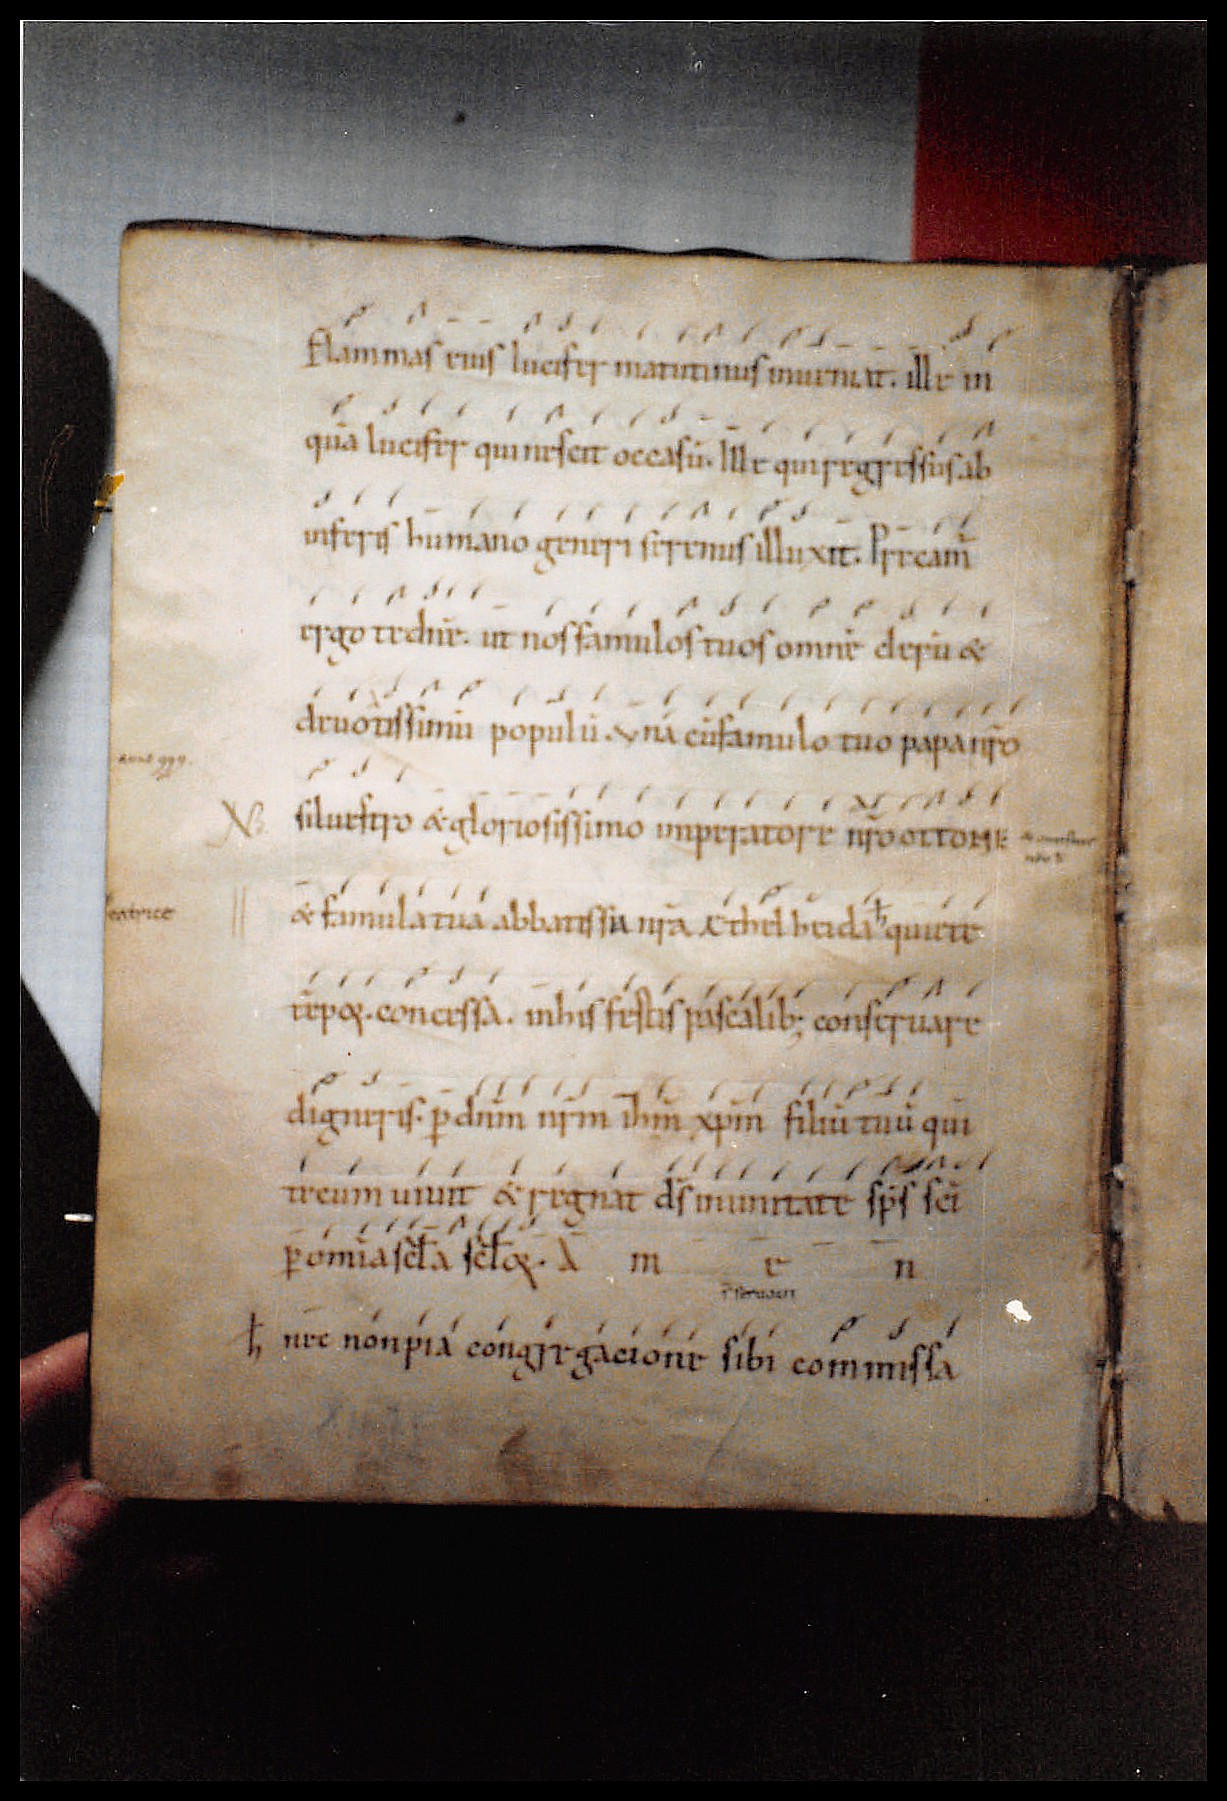 Flammas eius lucifer matutinus inueniat. ille in
quā lucifer qui nescit occasū. Ille qui regressus ab
inferis humano generi serenus illuxit. Precam̄
ergo te dn̄e. ut nos famulos tuos omnē clerū &
deuotissimū populū. una cū famulo tuo papa nr̄o
anno 999.
siluestro & gloriosissimo imperatore nr̄o ottone
& famula tua abbatissa nr̄a ethelheida ħ quiete
tēpoꝝ. concessa. in his festis pascalib; conseruare
digneris. ꝑ dn̄m nr̄m ih̄m xp̄m filiū tuū qui
tecum uiuit & regnat ds̄ in unitate sp̄s sc̄i
ꝑ omīa sēcła sēcłoꝝ. A m e n
ħ nec non pia congregacione sibi commissa